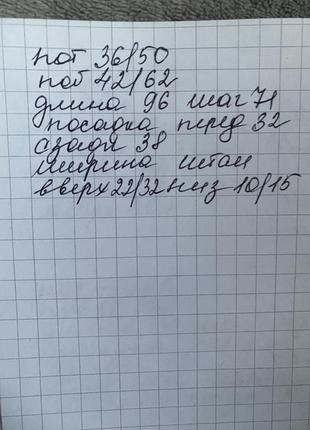 пот 36/50
поб 42/62
длина 96 шаг 71
посадка перед 32
сзади 38
ширина штан
вверх 22/32 низ 10/15